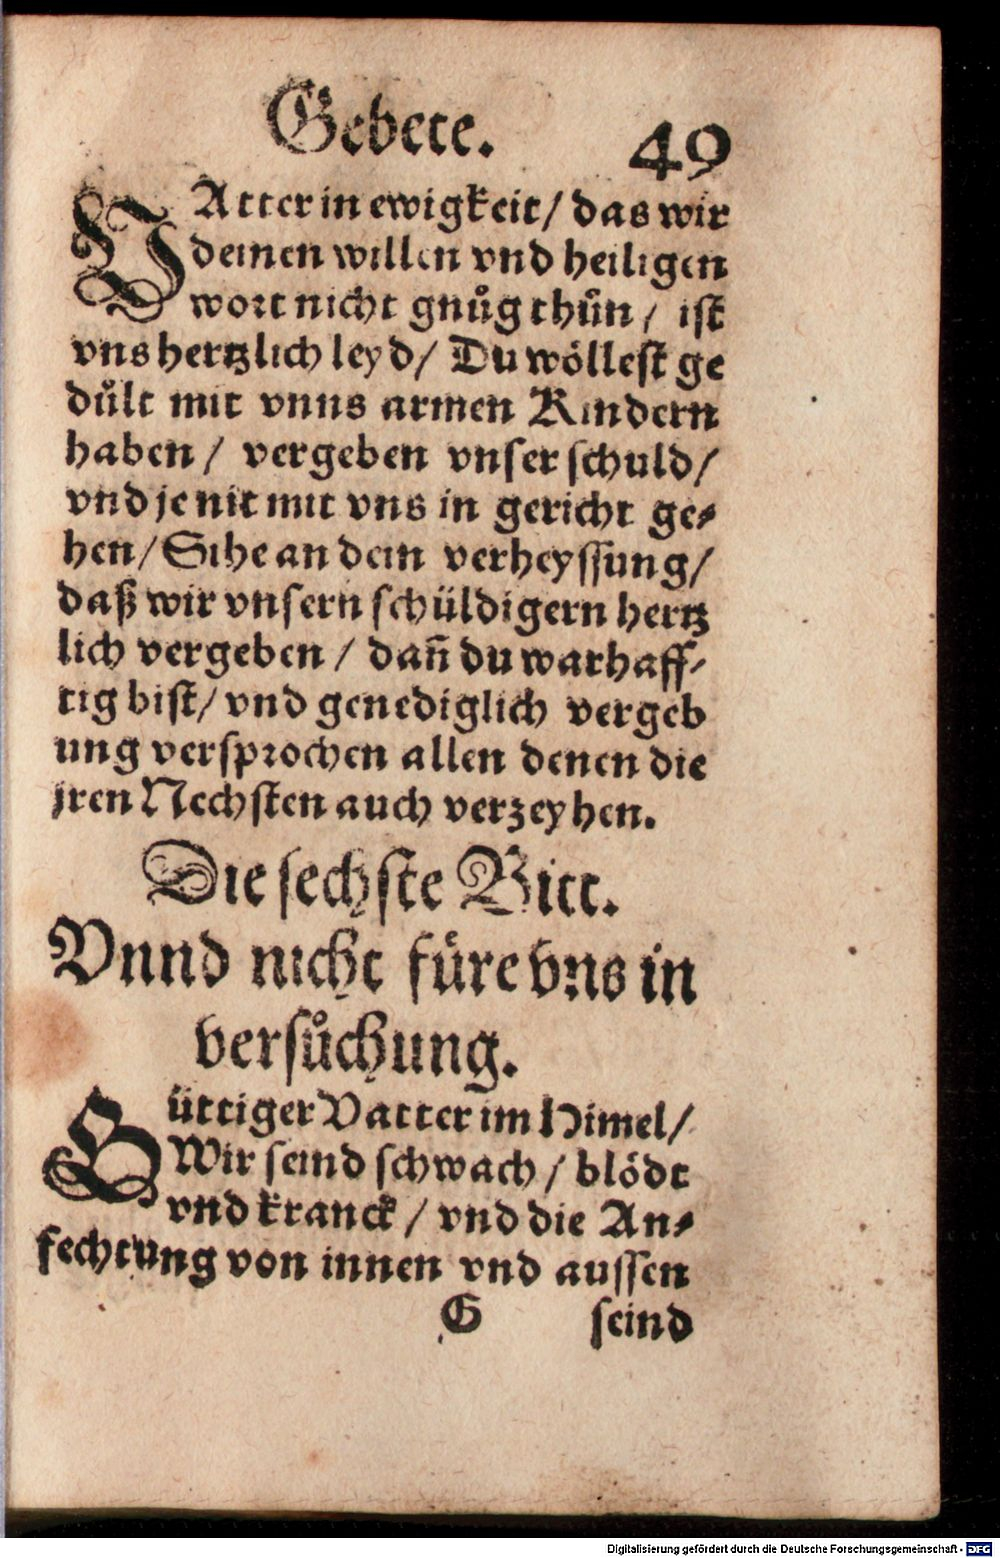 Gebete. 49
VAtter in ewigkeit/ das wir
deinen willen vnd heiligen
wort nicht gnůg thůn/ ist
vns hertzlich leyd/ Du wöllest ge
důlt mit vnns armen Kindern
haben/ vergeben vnser schuld/
vnd je nit mit vns in gericht ge⸗
hen/ Sihe an dein verheyssung/
daß wir vnsern schüldigern hertz
lich vergeben/ dañ du warhaff⸗
tig bist/ vnd genediglich vergeb
ung versprochen allen denen die
jren Nechsten auch verzeyhen.
Die sechste Bitt.
Vnnd nicht füre vns in
versůchung.
Güttiger Vatter im Himel/
Wir seind schwach/ blöde
vnd kranck/ vnd die An⸗
fechtung von innen vnd aussen
G seind
Digitalisierung gefördert durch die Deutsche Forschungsgemeinschaft - DFG